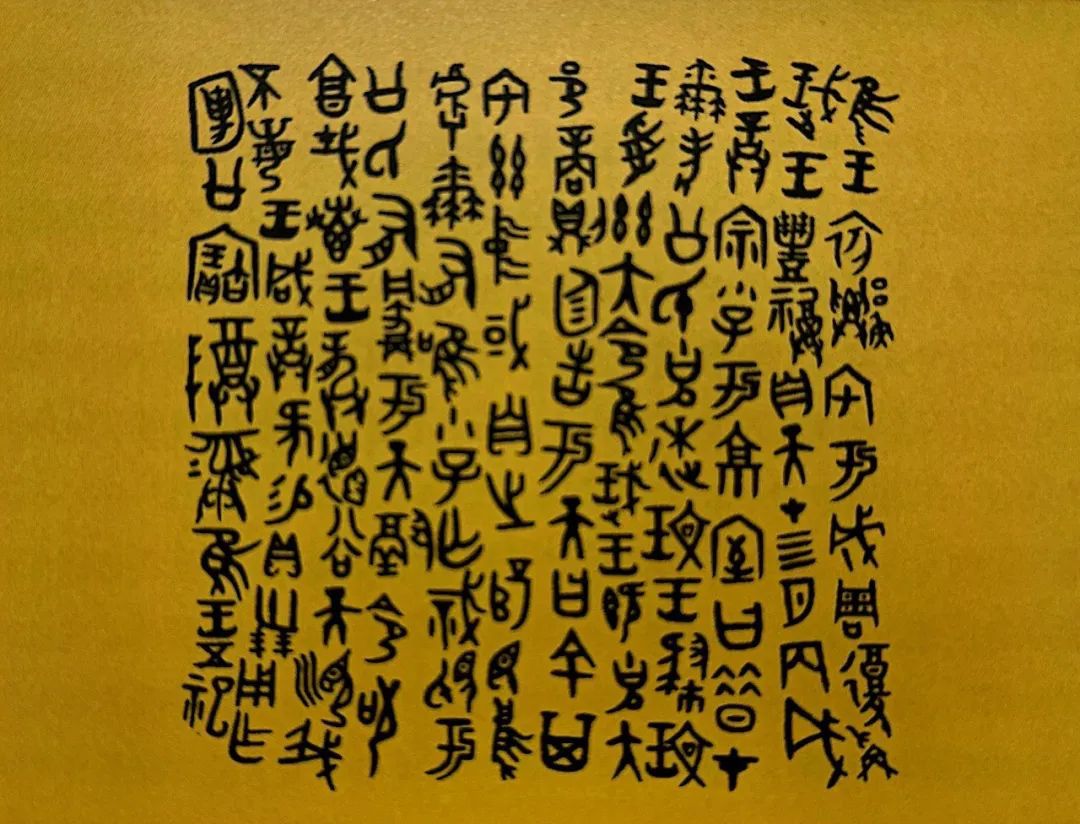 隹王初遷宅于成周復爯
珷王豐祼自天才四月丙戌
王誥宗小子于京室曰昔才
爾考公氏克逨玟王肆玟
王受茲大令隹珷王既克大
邑商則廷告于天曰余其
宅茲中或自之乂民烏
虖爾有唯小子亡識視于
公氏有爵于天徹令敬
享哉叀王龏德谷天順我
不敏王咸誥何易貝卅朋用乍
庾公寶尊彝隹王五祀